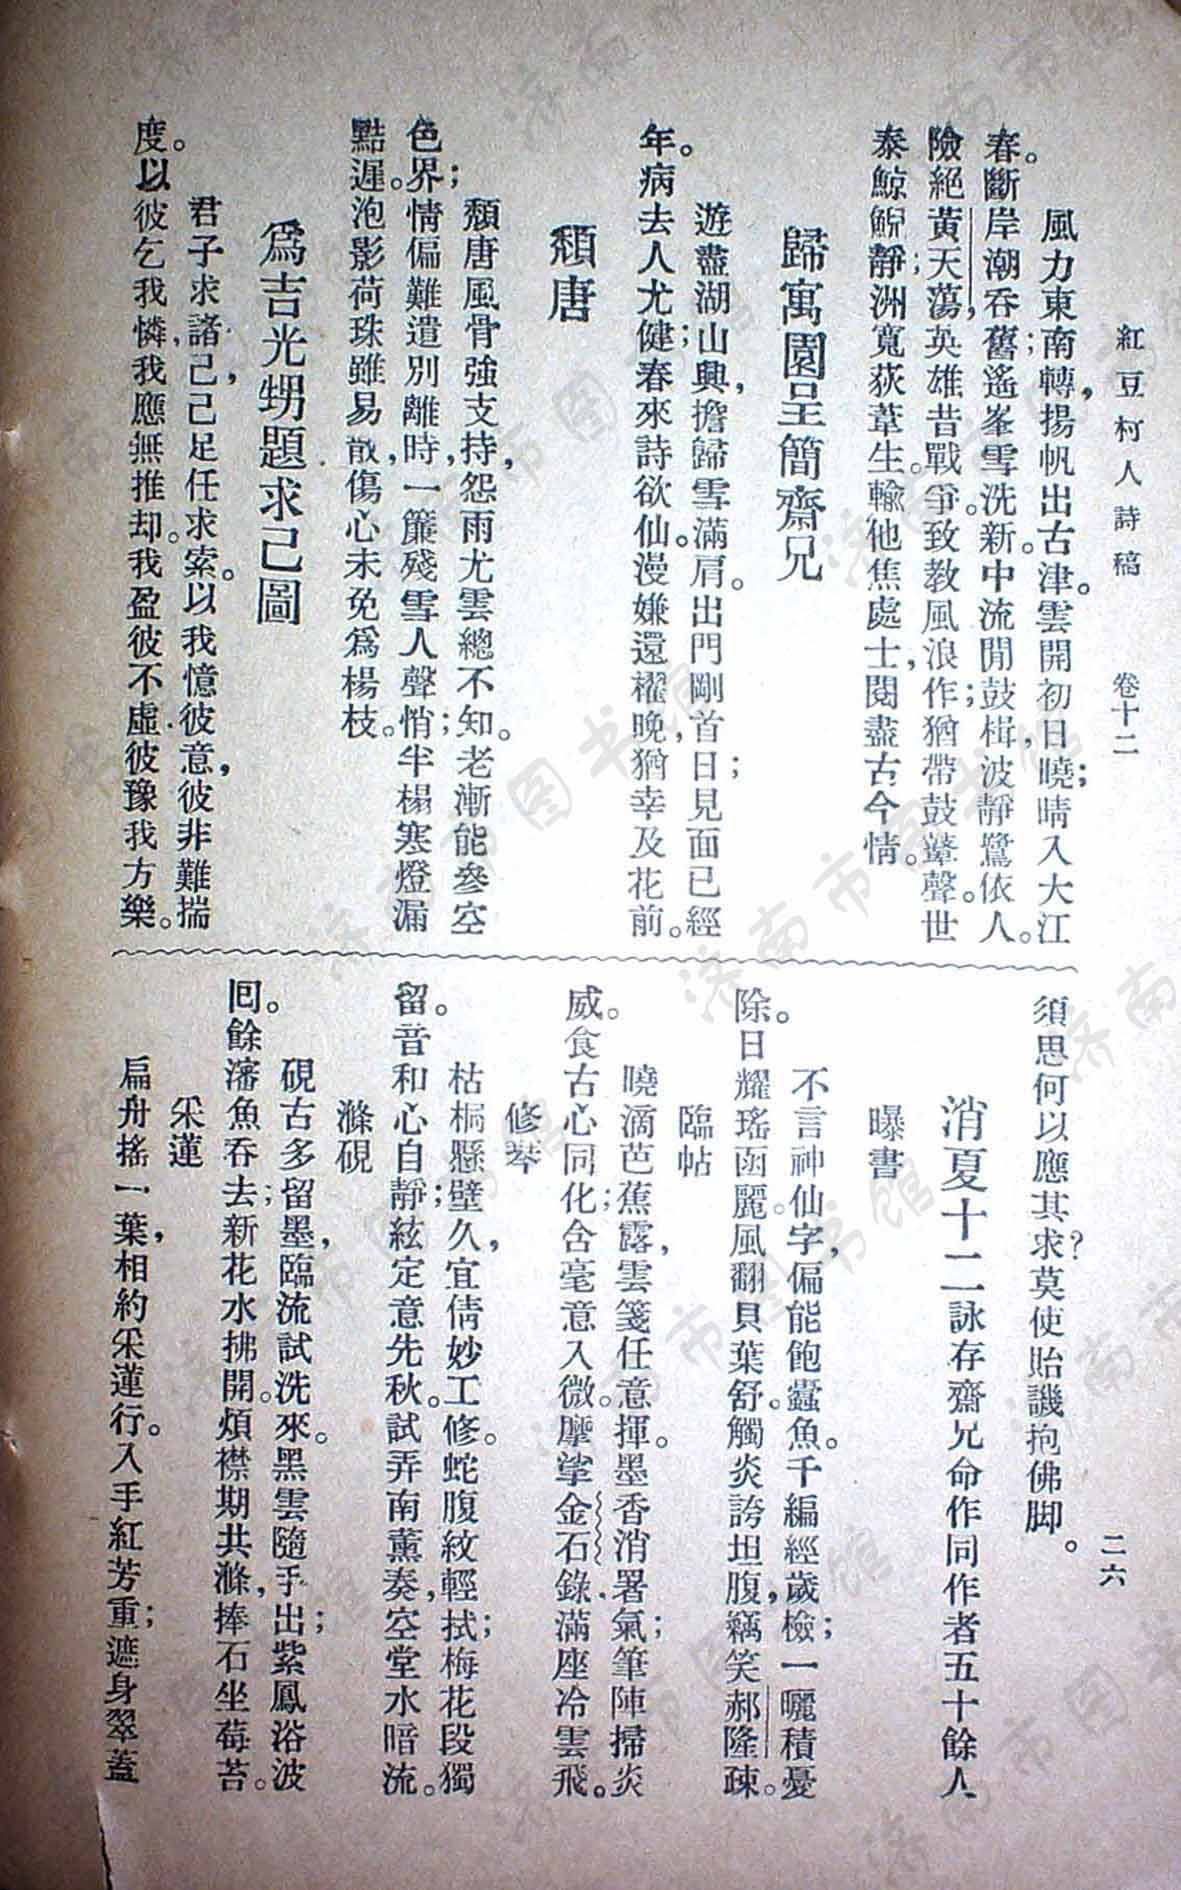 紅豆村人詩稿　卷十二　二六
風力東南轉，揚帆出古津。雲開初日曉；晴入大江
春。斷岸潮吞舊；遙峯雪洗新。中流閒鼓楫，波靜鷺依人。
險絕黃天蕩，英雄昔戰爭。致教風浪作；猶帶鼓鼙聲。世
泰鯨鯢靜；洲寬荻葦生。輸他焦處士，閱盡古今情。
歸寓園呈簡齋兄
遊盡湖山興，擔歸雪滿肩。出門剛首日；見面已經
年。病去人尤健；春來詩欲仙。漫嫌還櫂晚，猶幸及花前。
頹唐
頹唐風骨強支持，怨雨尤雲總不知。老漸能參空
色界；情偏難遣別離時，一簾殘雪人聲悄；半榻寒燈漏
點遲。泡影荷珠雖易散，傷心未免爲楊枝。
爲吉光甥題求己圖
君子求諸己，己足任求索。以我憶彼意，彼非難揣
度。以彼乞我憐，我應無推却。我盈彼不虛，彼豫我方樂。
須思何以應其求？莫使貽譏抱佛脚。
消夏十二詠存齋兄命作同作者五十餘人
曝書
不言神仙字，偏能飽蠹魚。千編經歲檢；一曬積憂
除。日耀瑤函麗。風翻貝葉舒。觸炎誇坦腹，竊笑郝隆疎。
臨帖
曉滴芭蕉露，雲箋任意揮。墨香消署氣；筆陣掃炎
威。食古心同化；含毫意入微。摩挲金石錄，滿座冷雲飛。
修琴
枯桐懸壁久，宜倩妙工修。蛇腹紋輕拭；梅花段獨
留。音和心自靜；絃定意先秋。試弄南薰奏，空堂水暗流。
滌硯
硯古多留墨，臨流試洗來。黑雲隨手出；紫鳳浴波
囘。餘瀋魚吞去；新花水拂開。煩襟期共滌，捧石坐莓苔。
采蓮
扁舟搖一葉，相約采蓮行。入手紅芳重；遮身翠蓋